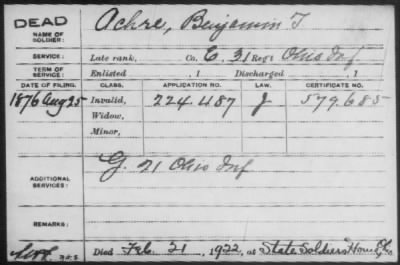 DEAD Achre, Benjamin T
NAME OF SOLDIER:
SERVICE: Late rank, Co. E. 31 Reg't Ohio Inf
TERM OF SERVICE: Enlisted , 1 Discharged , 1
DATE OF FILING. CLASS. APPLICATION NO. LAW. CERTIFICATE NO.
1876 Aug 25 Invalid, 224.487 J 579.685
Widow,
Minor,
G. 21 Ohio Inf
ADDITIONAL SERVICES:
REMARKS:
Died Feb. 21, 1922, at State Soldiers Home